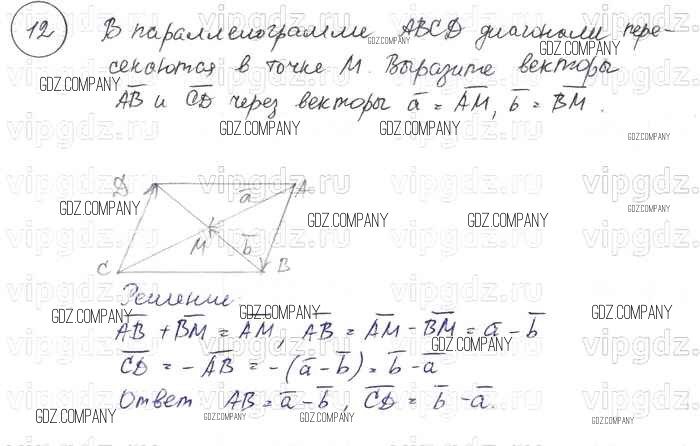 12 В параллелограмме ABCD диагонали пере-
секаются в точке M. Выразите векторы
A̅B̅ и C̅D̅ через векторы a̅ = A̅M̅, b̅ = B̅M̅.
D A
a̅
M b̅
C B
Решение.
A̅B̅ + B̅M̅ = A̅M̅, A̅B̅ = A̅M̅ - B̅M̅ = a̅ - b̅
C̅D̅ = - A̅B̅ = -(a̅ - b̅) = b̅ - a̅
Ответ AB = a̅ - b̅, C̅D̅ = b̅ - a̅.
GDZ.COMPANY
vipgdz.ru